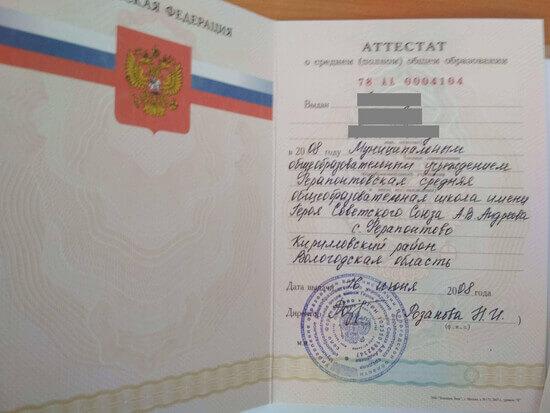 СКАЯ ФЕДЕРАЦИЯ
АТТЕСТАТ
о среднем (полном) общем образовании
78 АА 0004104
Выдан
в 2008 году Муниципальным
общеобразовательным учреждением
Ферапонтовская средняя
общеобразовательная школа имени
Героя Советского Союза А.В. Андреева
с. Ферапонтово
Кирилловский район
Вологодская область
Дата выдачи 16 июня 2008 года
Директор Розанова Н.И.
(ф., и., о.)
М.П.